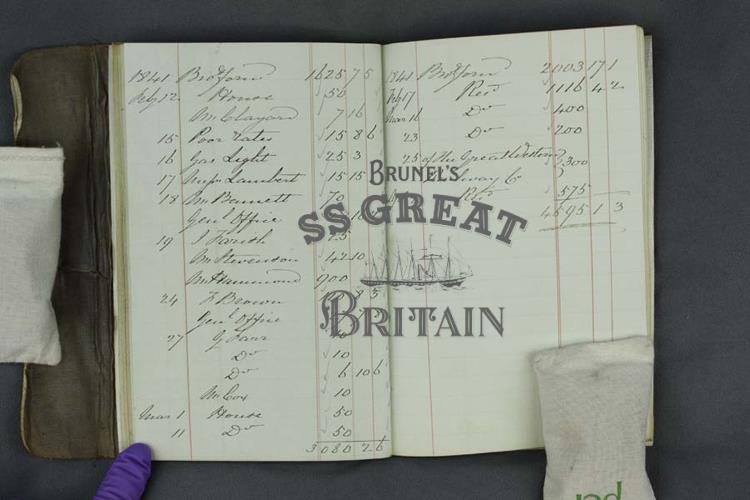 1841 Bro^t forw^d 1625 7 5
Feby 12 House 50
M Clayard 7 16
15 Poor rates 15 8 6
16 Gas Light 25 3
17 Lambert 15 15
18 Mr Bennett 70
Gen^l Office
19 J Farish 25
Mr Stevenson 42 10
Mr Hammond 900
24 F Brown 8 5
Gen^l Office
27 G Farr
D^o 10
D^o 6 10 6
Mr Cox 10
Mar 1 House 50
11 D^o 50
3080 2 6
1841 Bro^t forw^d 2003 17 1
Feb 17 Rec^d 1116 4 2
Mar 16 D^o 400
23 D^o 200
25 of the Great Western 300
Railway Co
575
4595 1 3
BRUNEL'S
SS GREAT
BRITAIN